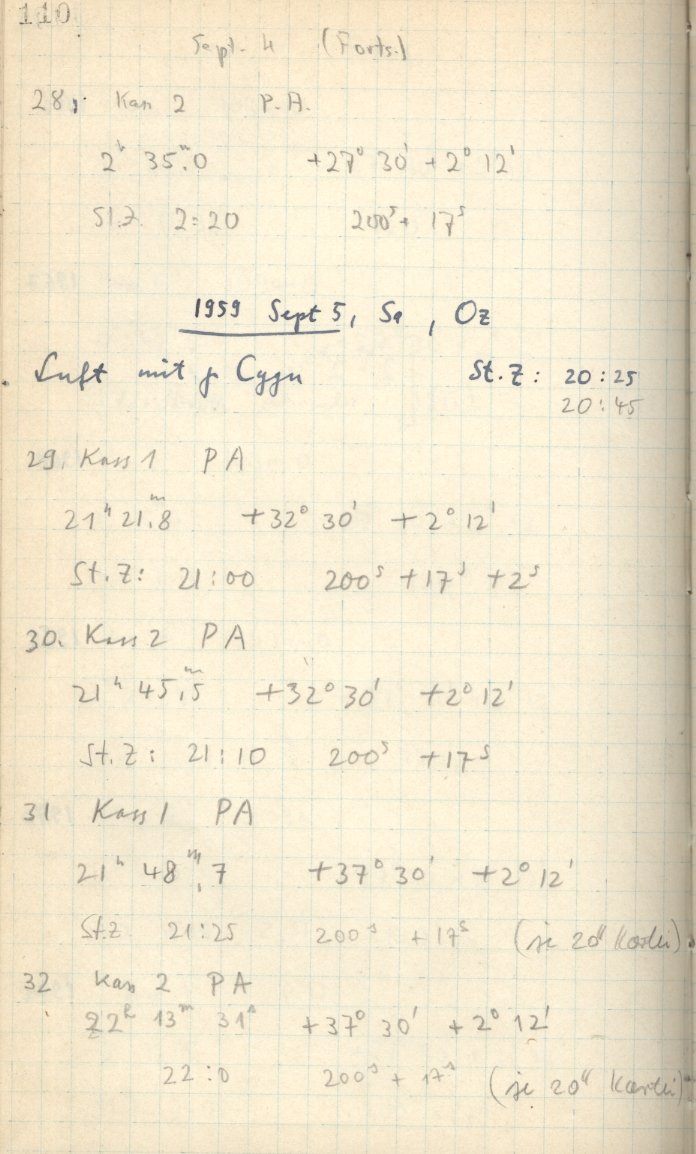 110
Sept. 4 (Forts.)
28, Kass 2 P.A.
2ʰ 35ᵐ.0 +27° 30' +2° 12'
St.Z 2:20 200ˢ + 17ˢ
1959 Sept 5, Sa, Oz
Luft mit γ Cygn St.Z: 20:25
20:45
29. Kass 1 PA
21ʰ 21ᵐ.8 +32° 30' +2° 12'
St.Z: 21:00 200ˢ +17ˢ +2ˢ
30. Kass 2 PA
21ʰ 45ᵐ.5 +32° 30' +2° 12'
St.Z: 21:10 200ˢ +17ˢ
31 Kass 1 PA
21ʰ 48ᵐ.7 +37° 30' +2° 12'
St.Z 21:25 200ˢ +17ˢ (je 20"
32 Kass 2 PA
22ʰ 13ᵐ 31ˢ +37° 30' +2° 12'
22:0 200ˢ + 17ˢ (je 20"